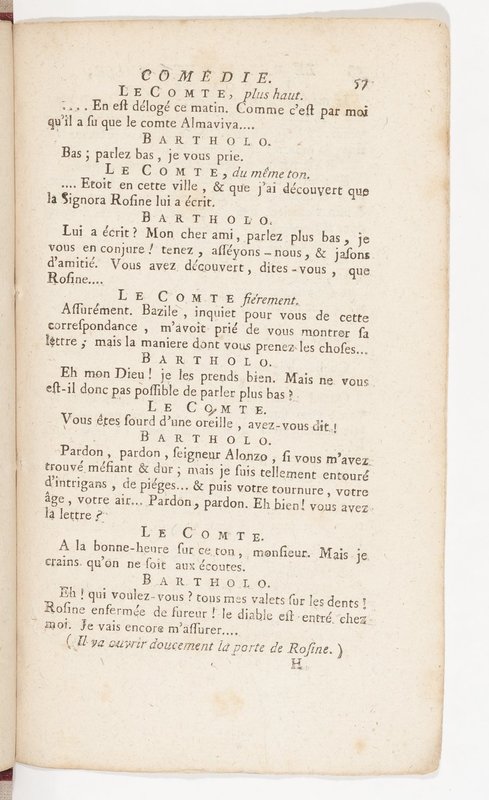 COMÉDIE. 57
LE COMTE, plus haut.
.... En eſt délogé ce matin. Comme c'eſt par moi
qu'il a ſu que le comte Almaviva....
BARTHOLO.
Bas ; parlez bas, je vous prie.
LE COMTE, du même ton.
.... Etoit en cette ville, & que j'ai découvert que
la Signora Roſine lui a écrit.
BARTHOLO.
Lui a écrit ? Mon cher ami, parlez plus bas, je
vous en conjure ! tenez, aſſéyons-nous, & jaſons
d'amitié. Vous avez découvert, dites-vous, que
Roſine....
LE COMTE fiérement.
Aſſurément. Bazile, inquiet pour vous de cette
correſpondance, m'avoit prié de vous montrer ſa
lettre ; mais la maniere dont vous prenez les choſes...
BARTHOLO.
Eh mon Dieu ! je les prends bien. Mais ne vous
eſt-il donc pas poſſible de parler plus bas ?
LE COMTE.
Vous êtes ſourd d'une oreille, avez-vous dit !
BARTHOLO.
Pardon, pardon, ſeigneur Alonzo, ſi vous m'avez
trouvé méfiant & dur ; mais je ſuis tellement entouré
d'intrigans, de piéges... & puis votre tournure, votre
âge, votre air... Pardon, pardon. Eh bien ! vous avez
la lettre ?
LE COMTE.
A la bonne-heure ſur ce ton, monſieur. Mais je
crains qu'on ne ſoit aux écoutes.
BARTHOLO.
Eh ! qui voulez-vous ? tous mes valets ſur les dents !
Roſine enfermée de fureur ! le diable eſt entré chez
moi. Je vais encore m'aſſurer....
( Il va ouvrir doucement la porte de Roſine. )
H